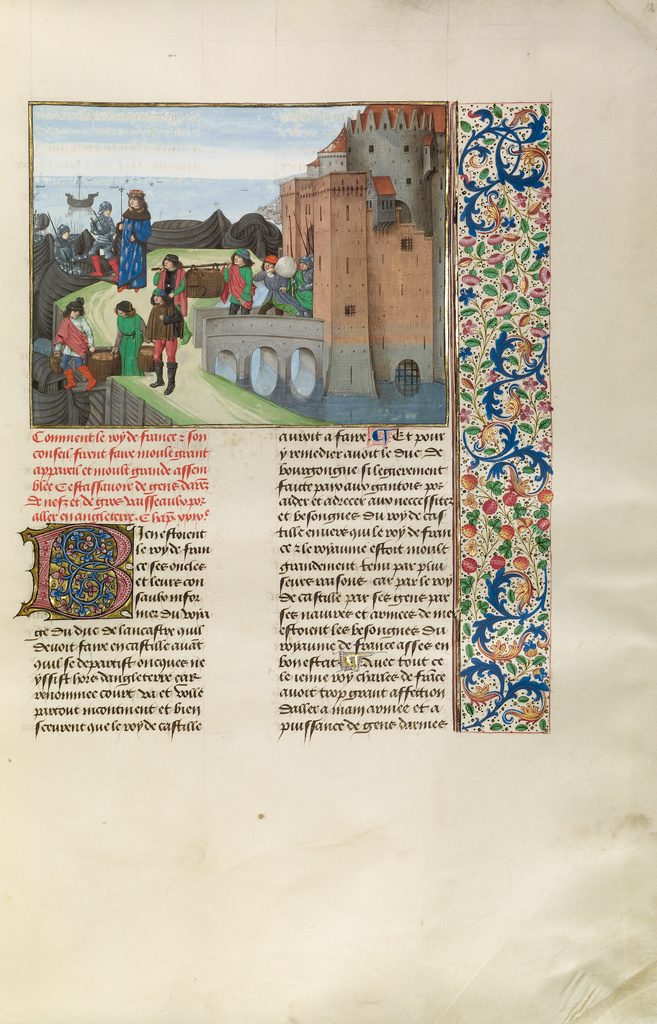 Comment le roy de france z son
conseil firent faire moult grant
appareil et moult grande assem
blee Cestassavoir de gens darmes
de nefz et de gros vaisseaulx por
aller en angleterre. Chapre
Bien estoient
le roy de fran
ce ses oncles
et leurs con
saulx infor
mez du voia
ge du duc de lancastre quil
devoit faire en castille avant
quil se departist oncques ne
yssist hors dangleterre car
renommee court va et volle
partout incontinent et bien
sceurent que le roy de castille
auroit a faire. Et pour
y remedier avoit le duc de
bourgongne si legierement
faicte paix aux gantois por
aider et adrecer aux necessitez
et besongnes du roy de cas
tille envers qui le roy de fran
ce z le royaume estoit moult
grandement tenu par plui
seurs raisons car par le roy
de castille par ses gens par
ses navires et armees de mer
estoient les besongnes du
royaume de france asses en
bon estat Avec tout ce
le jenne roy charles de france
avoit trop grant affection
daller a main armee et a
puissance de gens darmes